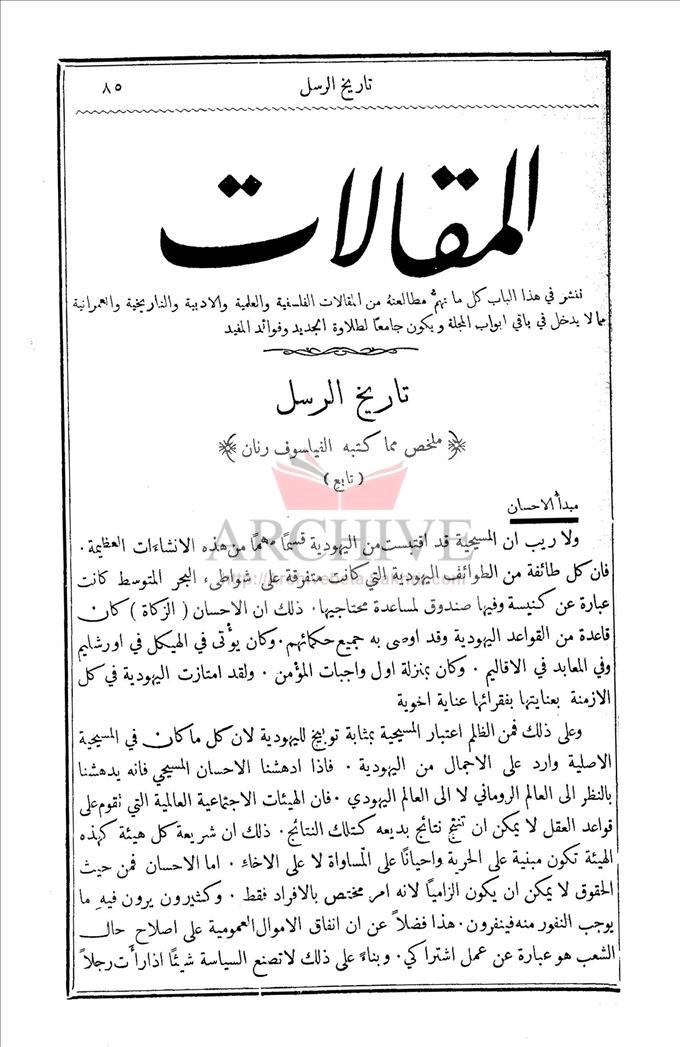 تاريخ الرسل
٨٥
المقالات
ننشر في هذا الباب كل ما تهم مطالعته من المقالات الفلسفية والعلمية والادبية والتاريخية والعمرانية
مما لا يدخل في باقي ابواب المجلة ويكون جامعًا لطلاوة الجديد وفوائد المفيد
تاريخ الرسل
ملخص مما كتبه الفيلسوف رنان
( تابع )
مبدأ الاحسان
ARCHIVE
ولا ريب ان المسيحية قد اقتبست من اليهودية قسمًا مهمًا من هذه الانشاءات العظيمة .
فان كل طائفة من الطوائف اليهودية التي كانت متفرقة على شواطىء البحر المتوسط كانت
عبارة عن كنيسة وفيها صندوق لمساعدة محتاجيها . ذلك ان الاحسان ( الزكاة ) كان
قاعدة من القواعد اليهودية وقد اوصى به جميع حكمائهم . وكان يؤتى في الهيكل في اورشليم
وفي المعابد في الاقاليم . وكان بمنزلة اول واجبات المؤمن . ولقد امتازت اليهودية في كل
الازمنة بعنايتها بفقرائها عناية اخوية
وعلى ذلك فمن الظلم اعتبار المسيحية بمثابة توبيخ لليهودية لان كل ما كان في المسيحية
الاصلية وارد على الاجمال من اليهودية . فاذا ادهشنا الاحسان المسيحي فانه يدهشنا
بالنظر الى العالم الروماني لا الى العالم اليهودي . فان الهيئات الاجتماعية العالمية التي تقوم على
قواعد العقل لا يمكن ان تنتج نتائج بديعه كتلك النتائج . ذلك ان شريعة كل هيئة كهذه
الهيئة تكون مبنية على الحرية واحيانًا على المساواة لا على الاخاء . اما الاحسان فمن حيث
الحقوق لا يمكن ان يكون الزاميًا لانه امر مختص بالافراد فقط . وكثيرون يرون فيه ما
يوجب النفور منه فينفرون . هذا فضلاً عن ان انفاق الاموال العمومية على اصلاح حال
الشعب هو عبارة عن عمل اشتراكي . وبناءً على ذلك لا تصنع السياسة شيئًا اذا رأت رجلاً